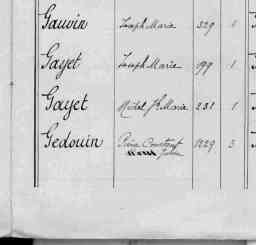 Gauvin Joseph Marie 329 1
Gayet Joseph Marie 199 1
Gayet Michel Marie 231 1
Gedouin Constant 1229 3